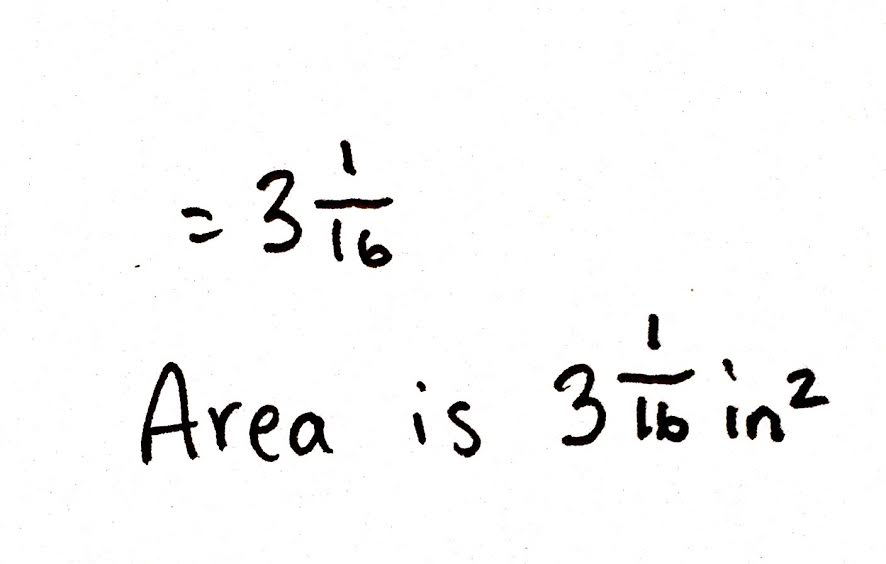 = 3 1/16
Area is 3 1/16 in²